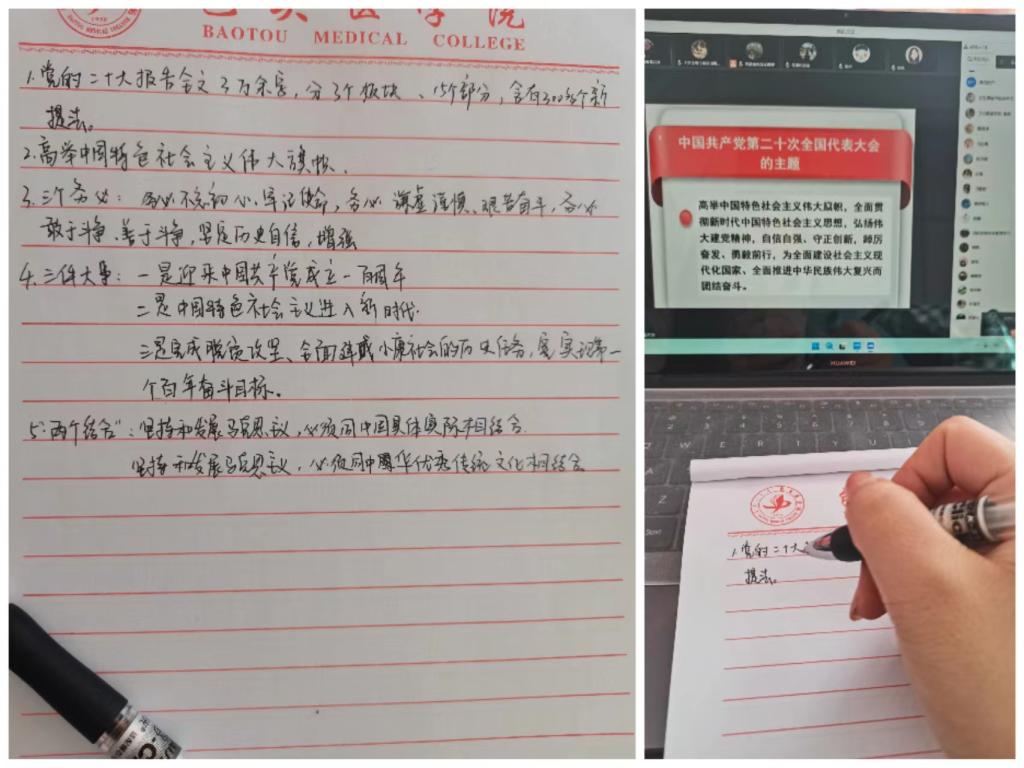 包头医学院
BAOTOU MEDICAL COLLEGE
1.党的二十大报告全文3万余字,分3个板块、15个部分,含有300多个新
提法。
2.高举中国特色社会主义伟大旗帜、
3.三个务必:务必不忘初心、牢记使命,务必谦虚谨慎、艰苦奋斗,务必
敢于斗争、善于斗争,坚定历史自信,增强
4.三件大事:一是迎来中国共产党成立一百周年
二是中国特色社会主义进入新时代.
三是完成脱贫攻坚、全面建成小康社会的历史任务,实现第一
个百年奋斗目标。
5."两个结合":坚持和发展马克思主义,必须同中国具体实际相结合.
坚持和发展马克思主义,必须同中华优秀传统文化相结合
中国共产党第二十次全国代表大会
的主题
高举中国特色社会主义伟大旗帜,全面贯
彻新时代中国特色社会主义思想,弘扬伟
大建党精神,自信自强、守正创新,踔厉
奋发、勇毅前行,为全面建设社会主义现
代化国家、全面推进中华民族伟大复兴而
团结奋斗。
HUAWEI
W E R T Y U
1.党的二十大
提法。